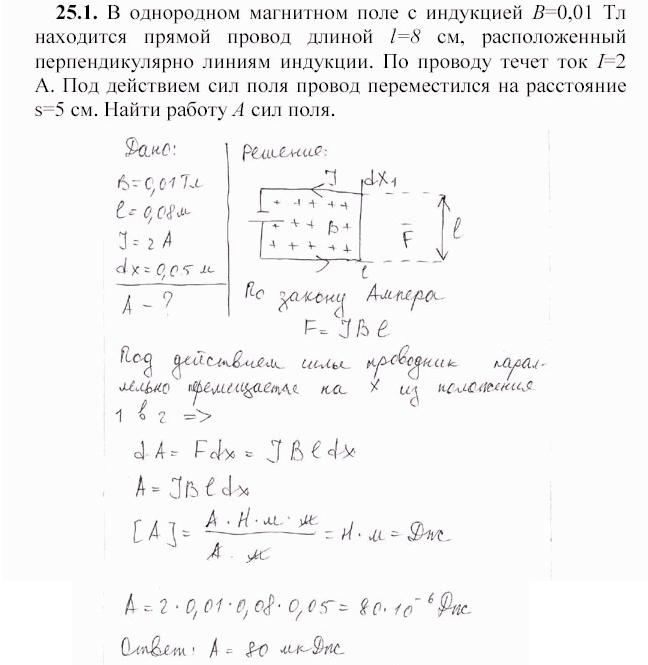 25.1. В однородном магнитном поле с индукцией B=0,01 Тл
находится прямой провод длиной l=8 см, расположенный
перпендикулярно линиям индукции. По проводу течет ток I=2
А. Под действием сил поля провод переместился на расстояние
s=5 см. Найти работу A сил поля.
Дано:
B=0,01Тл
l=0,08м
J=2 A
dx=0,05 м
A - ?
Решение:
J dx 1
+ + + + +
+ + + B +
+ + + + +
F l
l
По закону Ампера
F= JBl
Под действием силы проводник парал-
лельно перемещается на x из положения
1 в 2 =>
dA= Fdx= JBldx
A= JBldx
[A]= A·Н·м·м / A·м = Н·м= Дж
A=2·0,01·0,08·0,05=80·10⁻⁶Дж
Ответ: A= 80 мкДж